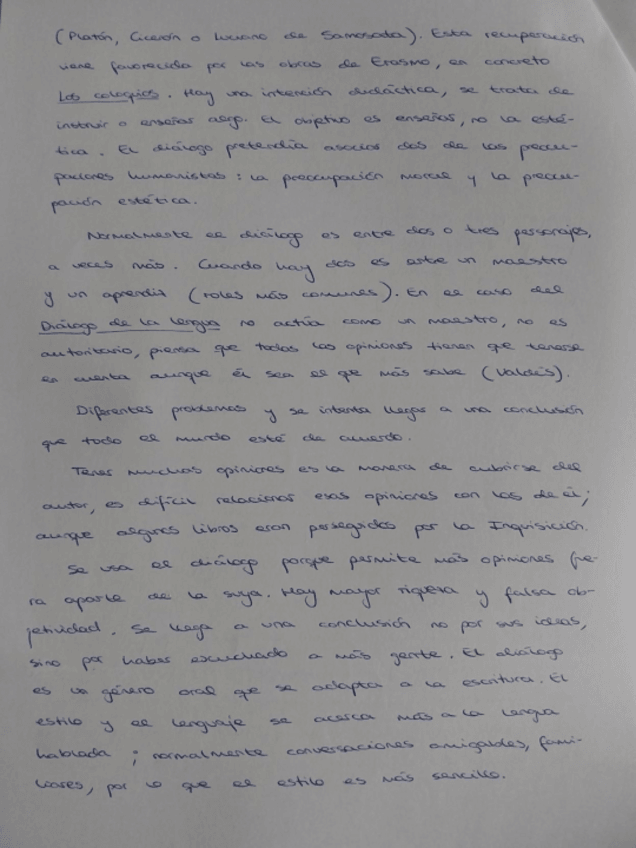 (Platón, Cicerón o Luciano de Samosada). Esta recuperación
viene favorecida por las obras de Erasmo, en concreto
Los coloquios. Hay una intención didáctica, se trata de
instruir o enseñar algo. El objetivo es enseñar, no la esté-
tica. El diálogo pretendía asociar dos de las preocu-
paciones humanistas: la preocupación moral y la preocu-
pación estética.
Normalmente el diálogo es entre dos o tres personajes,
a veces más. Cuando hay dos es entre un maestro
y un aprendiz (roles más comunes). En el caso del
Diálogo de la lengua no actúa como un maestro, no es
autoritario, piensa que todas las opiniones tienen que tenerse
en cuenta aunque él sea el que más sabe (Valdés).
Diferentes problemas y se intenta llegar a una conclusión
que todo el mundo esté de acuerdo.
Tener muchas opiniones es la manera de cubrirse del
autor, es difícil relacionar esas opiniones con las de él;
aunque algunos libros eran perseguidos por la Inquisición.
Se usa el diálogo porque permite más opiniones fue-
ra aparte de la suya. Hay mayor riqueza y falsa ob-
jetividad. Se llega a una conclusión no por sus ideas,
sino por haber escuchado a más gente. El diálogo
es un género oral que se adapta a la escritura. El
estilo y el lenguaje se acerca más a la lengua
hablada; normalmente conversaciones amigables, fami-
liares, por lo que el estilo es más sencillo.